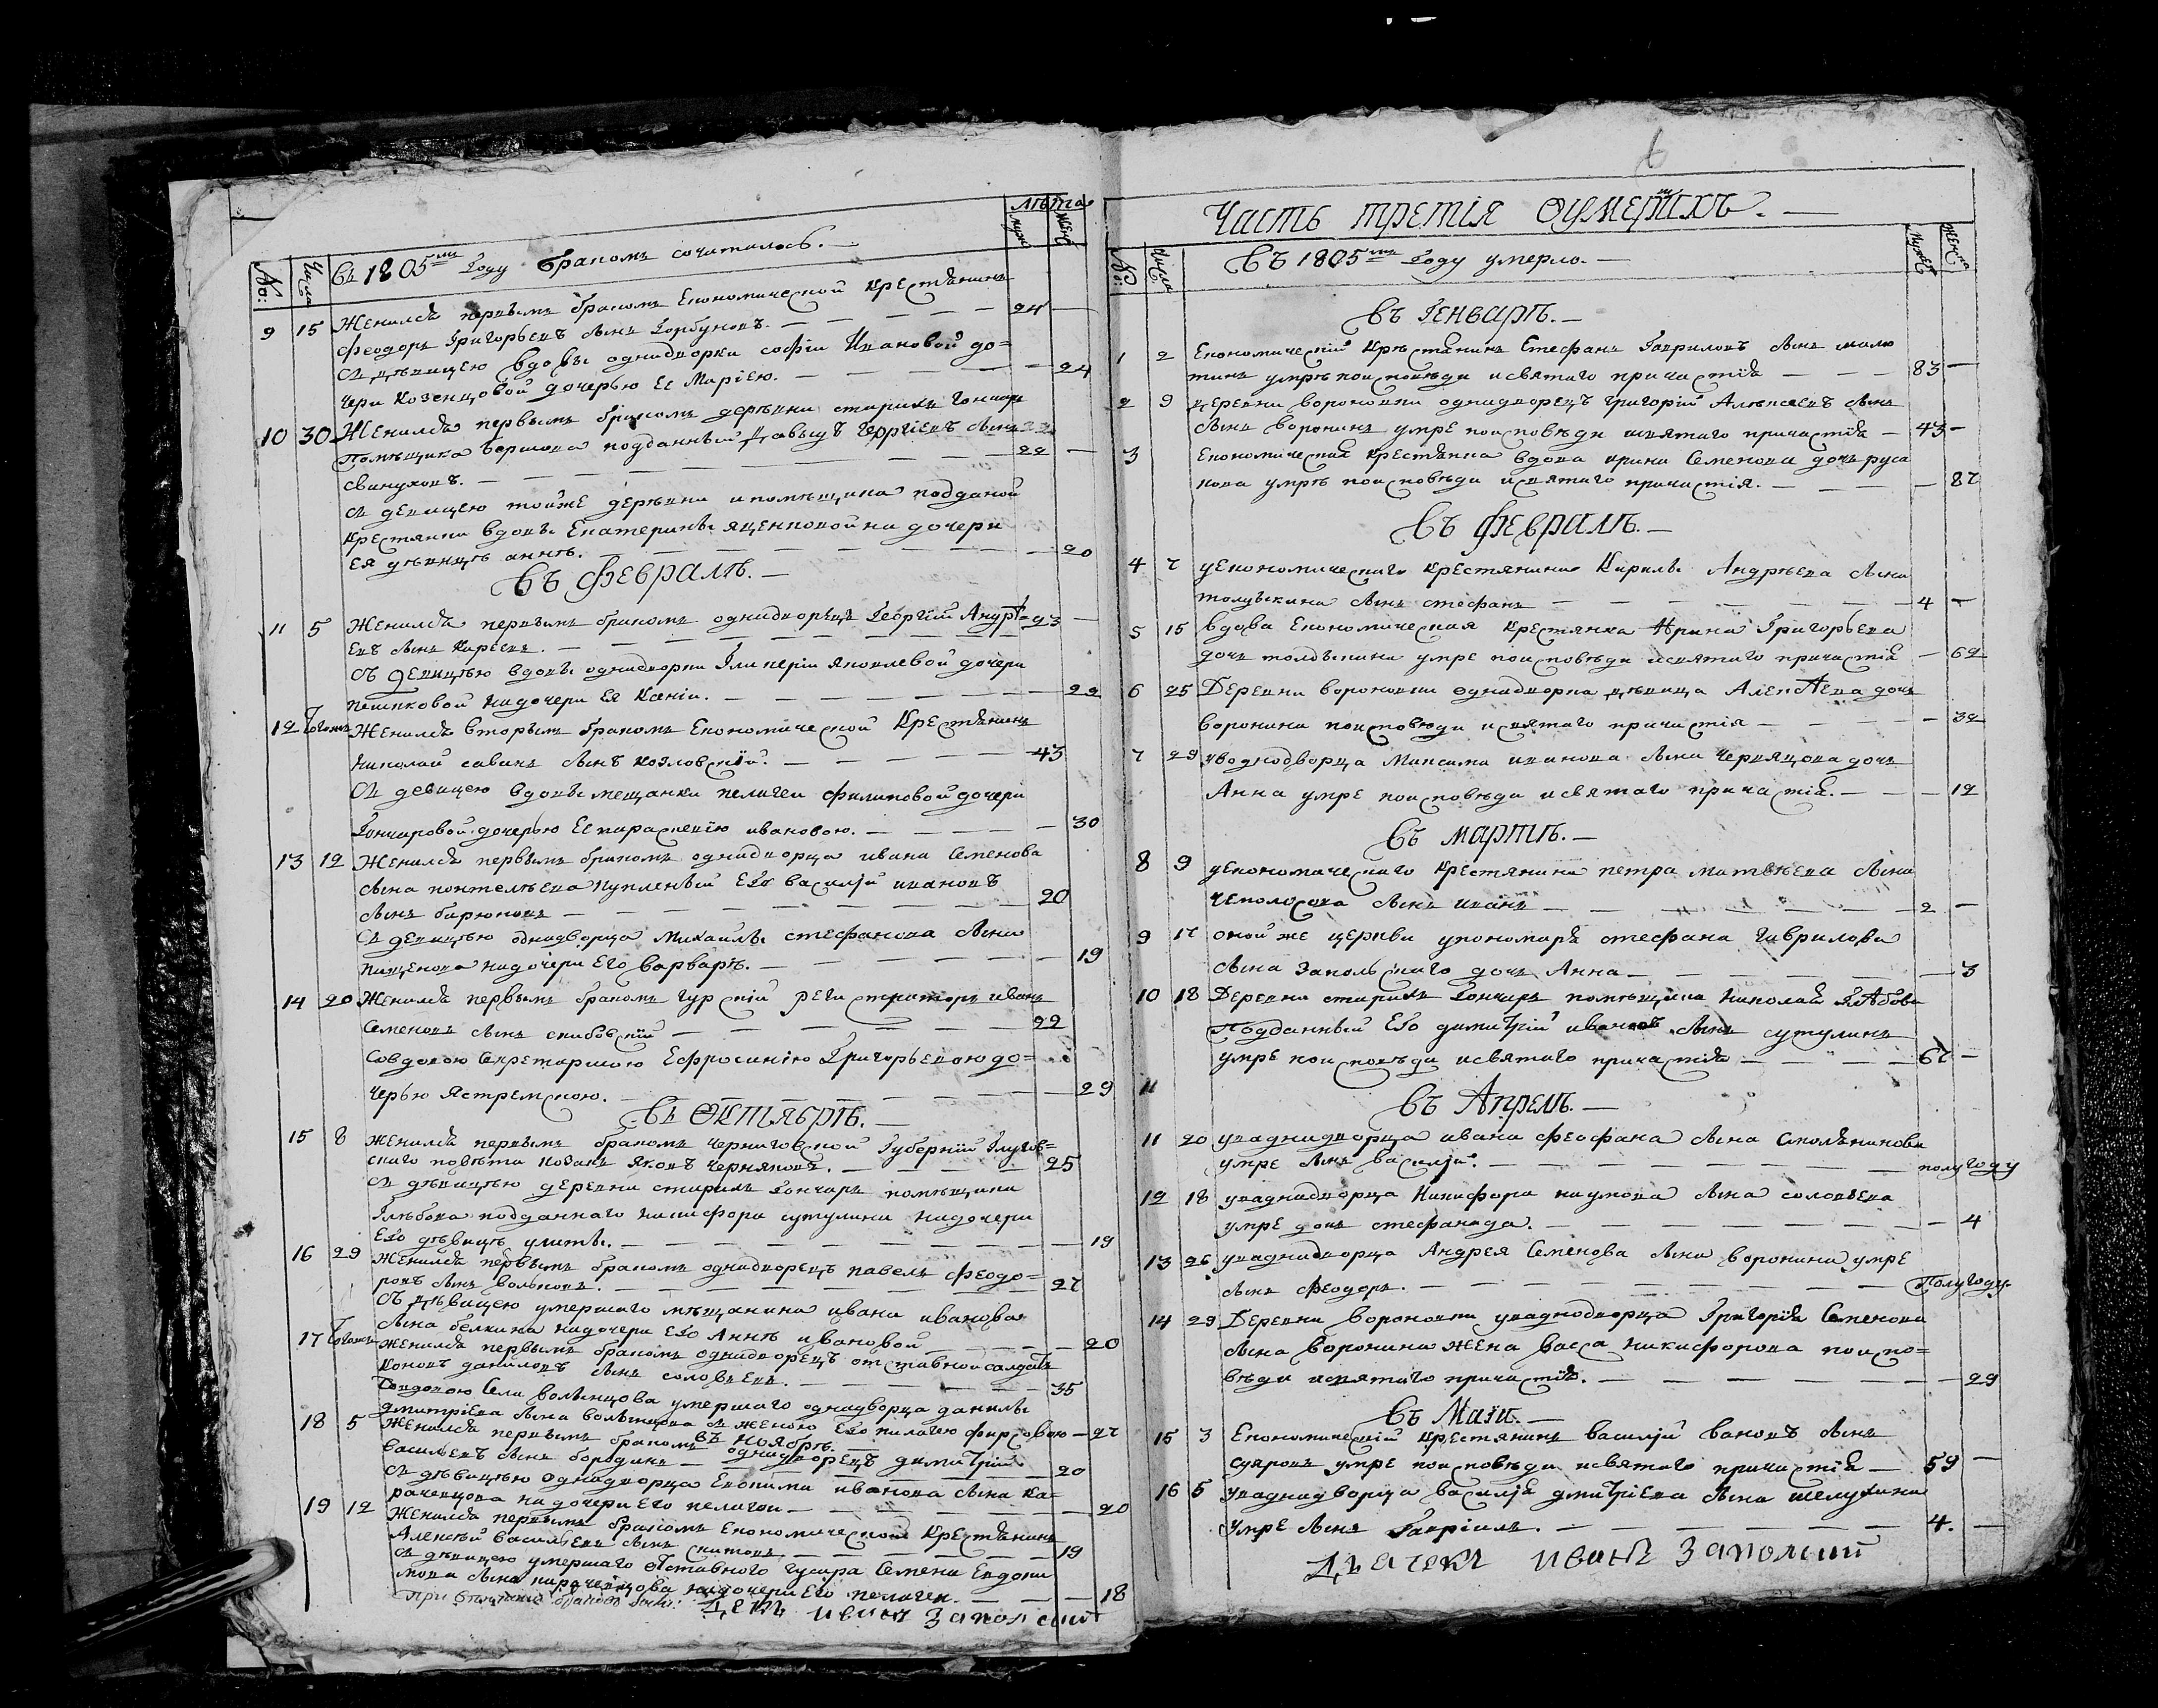 №: Числа Въ 1805мъ Году бракомъ сочиталось. Лѣта муж женс
9 15 Женился первымъ бракомъ Економической крестянинъ
Феодоръ Григорьевъ сынъ Горбуновъ. 24
съ дѣвицею вдовы однодворки софіи Ивановой до=
чери Козенцовой дочерью Ее Маріею. 24
10 30 Женился первымъ бракомъ деревни старихъ Гончаръ
Помѣщика подданный Давыдъ Георгіевъ сынъ
свинуховъ. 22
съ девицею тойже деревни и помѣщика подданой
крестянки вдовы Екатерины яценковой на дочери
Ея дѣвицѣ аннѣ. 20
Въ Февралѣ.
11 5 Женился первымъ бракомъ однодворецъ Георгій Андрѣ= 23
евъ сынъ Киреевъ.
съ Девицѣю вдовы однодворки Гликеріи яковлевой дочери
надочери Ея Ксеніи. 22
12 Тогожъ Женился вторымъ бракомъ Економической Крестянинъ
Николай савинъ сынъ козловскій. 43
съ девицею вдовы мещанки пелагеи филиповой дочери
Гончаровой дочерью Ее парасковію ивановою. 30
13 12 Женился первымъ бракомъ однодворца ивана Семенова
сына пантелѣева купленый Его василій ивановъ
сынъ бирюковъ 20
съ девицѣю однодворца Михайлы стефанова сына
надочери Его варварѣ. 19
14 20 Женился первымъ бракомъ регистраторъ иванъ
Семеновъ сынъ 22
совдовою Секретаршою Ефросинію Григорьевою до=
черью Ястремскою. 29
Въ Октябрѣ.
15 8 женился первымъ бракомъ черниговской Губерніи Глухов=
скаго повѣта козакъ яковъ черняковъ. 25
съ дѣвицѣю деревни старихъ Гончаръ помѣщика
Глѣбова подданнаго никифора сутулина надочери
Его дѣвицѣ улитѣ. 19
16 29 женился первымъ бракомъ однодворецъ павелъ Феодо=
ровъ сынъ волковъ. 27
съ дѣвицею умершаго мѣщанина ивана иванова
сына белкина надочери Его Аннѣ ивановой 20
17 Тогожъ женился первымъ бракомъ однодворецъ отставной салдатъ
кононъ даниловъ сынъ соловьевъ. 35
Совдовою Села волынцова умершаго однодворца данилы
дмитріева сына волынцова съ женою Его пилагею фирсовою 27
въ Ноябрѣ.
18 5 Женился первымъ бракомъ однодворецъ димитрій
васильевъ сынъ бородинъ 20
съ дѣвицѣю однодворца Евфима иванова сына Ка=
раченцова надочери Его пелагеи 20
19 12 Женился первымъ бракомъ Економической крестянинъ
Алексѣй васильевъ сынъ 19
съ дѣвицею умершаго отставного гусара Семена Евдоки
мова сына карачевцова надочери Его пелагеи. 18
Дячекъ иванъ Заполский
6
Часть третія оумершихъ.
№: Числа Въ 1805мъ Году умерло. мужеск женска
Въ Генварѣ.
1 2 Економический крестянинъ Стефанъ Гавриловъ сынъ малю
тинъ умрѣ поисповѣди исвятаго причастія 83
2 9 деревни вороновки однодворецъ григорій Алексеевъ сынъ
сынъ воронинъ умре поисповѣди исвятаго причастія 43
3 Економическая крестянка вдова ирина Семенова дочь руса
кова умрѣ поисповѣди исвятаго причастія. 87
Въ Февралѣ.
4 7 уекономическаго крестянина Кирилы Андрѣева сына
толдыкина сынъ стефанъ 4
5 15 вдова Економическая крестянка Ирина Григорьева
дочь толдыкина умре поисповѣди исвятаго причастія 62
6 25 Деревни вороновки однодворка дѣвица дочь
воронина поисповѣди исвятаго причастія 32
7 29 уводнодворца Максима иванова сына чернядова дочь
Анна умре поисповѣди исвятаго причастія. 12
Въ мартѣ.
8 9 уекономическаго крестянина петра матвѣева сына
чеполосова сынъ иванъ 2
9 17 оной же церкви упономаря стефана гаврилова
сына Запольскаго дочь Анна 3
10 18 Деревни старихъ Гончаръ помѣщика николая Глѣбова
Подданный Его димитрій ивановъ сынъ сутулинъ
умре поисповѣди исвятаго причастія 67
11
Въ Апрелѣ.
11 20 уваднидворца ивана феофана сына Смолянинова
умре сынъ василій. полугоду
12 18 уваднидворца Никифора наумова сына соловьева
умре дочь стефанида. 4
13 26 уваднидворца Андрея Семенова сына воронина умре
сынъ Феодоръ. Полугоду.
14 29 Деревни вороновки уваднодворца Григорія Семенова
сына воронина жена васса никифорова поиспо=
вѣди исвятаго причастія. 29
Въ Маіи.
15 3 Економический крестянинъ василій вановъ сынъ
умре поисповѣди исвятаго причастія 59
16 5 уваднидворца василія дмитріева сына шелухина
умре сынъ Гавріилъ. 4.
Дьячекъ иванъ Заполский